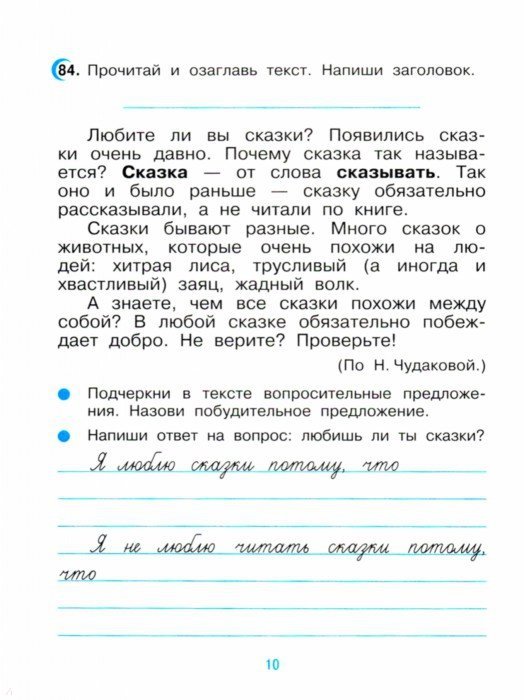 84. Прочитай и озаглавь текст. Напиши заголовок.
Любите ли вы сказки? Появились сказ-
ки очень давно. Почему сказка так называ-
ется? Сказка — от слова сказывать. Так
оно и было раньше — сказку обязательно
рассказывали, а не читали по книге.
Сказки бывают разные. Много сказок о
животных, которые очень похожи на лю-
дей: хитрая лиса, трусливый (а иногда и
хвастливый) заяц, жадный волк.
А знаете, чем все сказки похожи между
собой? В любой сказке обязательно побеж-
дает добро. Не верите? Проверьте!
(По Н. Чудаковой.)
Подчеркни в тексте вопросительные предложе-
ния. Назови побудительное предложение.
Напиши ответ на вопрос: любишь ли ты сказки?
Я люблю сказки потому, что
Я не люблю читать сказки потому,
что
10